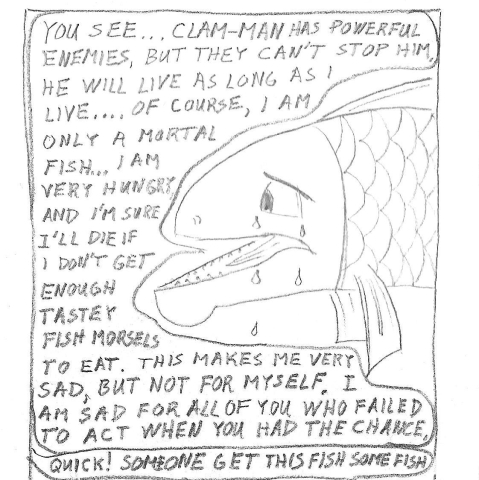 YOU SEE... CLAM-MAN HAS POWERFUL
ENEMIES, BUT THEY CAN'T STOP HIM,
HE WILL LIVE AS LONG AS I
LIVE.... OF COURSE, I AM
ONLY A MORTAL
FISH... I AM
VERY HUNGRY
AND I'M SURE
I'LL DIE IF
I DON'T GET
ENOUGH
TASTEY
FISH MORSELS
TO EAT. THIS MAKES ME VERY
SAD, BUT NOT FOR MYSELF. I
AM SAD FOR ALL OF YOU WHO FAILED
TO ACT WHEN YOU HAD THE CHANCE,
QUICK! SOMEONE GET THIS FISH SOME FISH